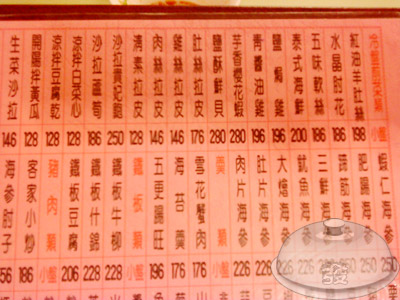 小盤
紅油羊肚絲 198
水晶肘花 186
五味軟絲 186
泰式海鮮 200
鹽焗雞 196
青醬油雞 196
芋香櫻花蝦 280
鹽酥鮮貝 280
肚絲拉皮 176
雞絲拉皮 146
肉絲拉皮 146
清素拉皮 128
沙拉貴妃鮑 250
沙拉蘆筍 186
涼拌白菜心 128
涼拌豆腐乾 128
開陽拌黃瓜 128
生菜沙拉 146
蝦仁海參 250
肥腸海參 250
蹄筋海參
三鮮海參
魷魚海參
大燴海參 226
肚片海參 226
肉片海參 226
羹類 小盤
雪花蟹肉 176
海苔羹 176
五更腸旺 196
鐵板類 小盤
鐵板牛柳 228
鐵板什錦 228
鐵板豆腐 206
豬肉類 小盤
客家小炒 186
海參肘子 256